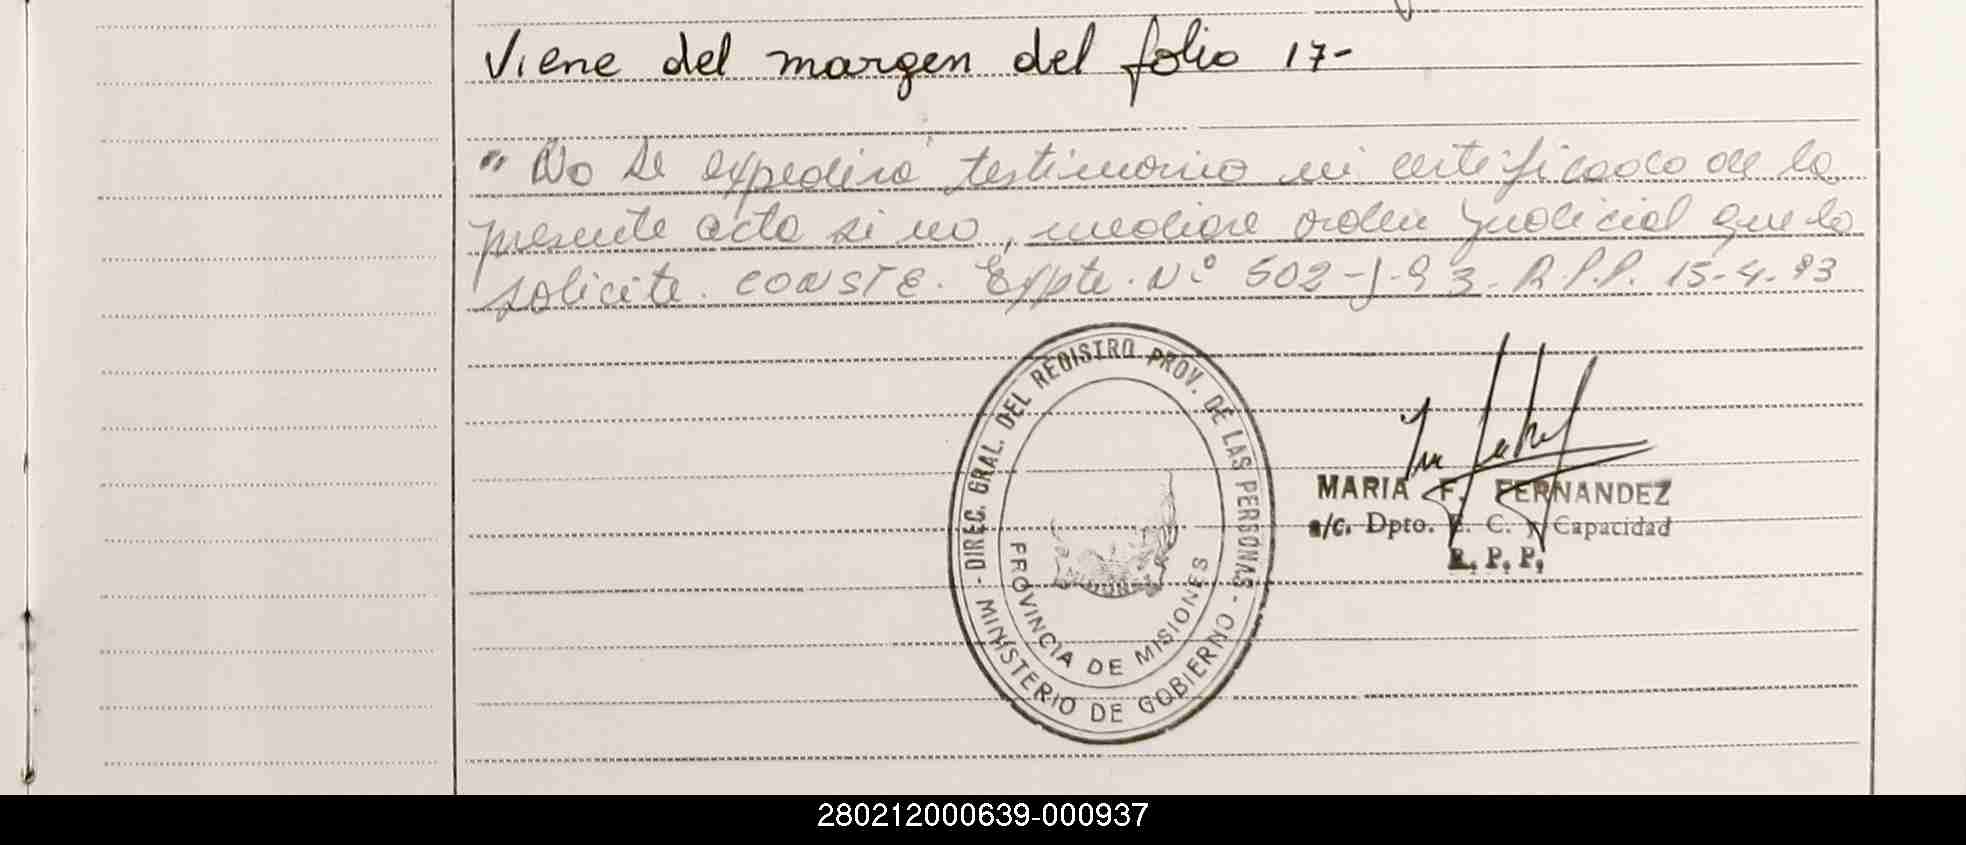 Viene del margen del folio 17-
" No se expedirá testimonio ni certificado de la
presente acta si no, mediare orden judicial que lo
solicite. CONSTE. Expte. Nº 502-J-93. R.P.P. 15-4-93
- DIREC. GRAL. DEL REGISTRO PROV. DE LAS PERSONAS -
MINISTERIO DE GOBIERNO
PROVINCIA DE MISIONES
MARIA F. FERNANDEZ
a/c. Dpto. E. C. y Capacidad
R. P. P.
280212000639-000937